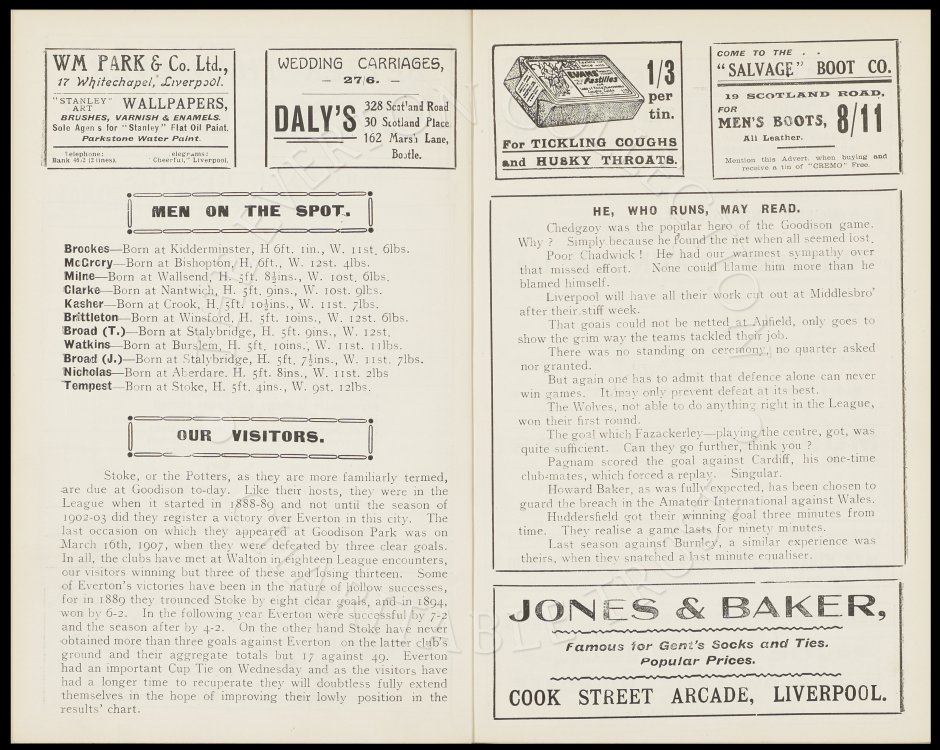 WM PARK & Co. Ltd.,
17 Whitechapel, Liverpool.
"STANLEY" ART WALLPAPERS,
BRUSHES, VARNISH & ENAMELS.
Sole Agen s for "Stanley" Flat Oil Paint.
Parkstone Water Paint.
Telephone: elegrams:
Bank 46.2 (2 lines). "Cheerful," Liverpool.
WEDDING CARRIAGES,
— 27/6. —
DALY'S
328 Scotland Road
30 Scotland Place
162 Marsh Lane,
Bootle.
MEN ON THE SPOT.
Brookes—Born at Kidderminster, H 6ft. 1in., W. 11st. 6lbs.
McCrory—Born at Bishopton, H. 6ft., W. 12st. 4lbs.
Milne—Born at Wallsend, H. 5ft. 8½ins., W. 10st. 6lbs.
Clarke—Born at Nantwich, H. 5ft. 9ins., W. 10st. 9lbs.
Kasher—Born at Crook, H. 5ft. 10½ins., W. 11st. 7lbs.
Brittleton—Born at Winsford, H. 5ft. 10ins., W. 12st. 6lbs.
Broad (T.)—Born at Stalybridge, H. 5ft. 9ins., W. 12st.
Watkins—Born at Burslem, H. 5ft, 10ins., W. 11st. 11lbs.
Broad (J.)—Born at Stalybridge, H. 5ft, 7½ins., W. 11st. 7lbs.
Nicholas—Born at Aberdare. H. 5ft. 8ins., W. 11st. 2lbs
Tempest—Born at Stoke, H. 5ft. 4ins., W. 9st. 12lbs.
OUR VISITORS.
Stoke, or the Potters, as they are more familiarly termed,
are due at Goodison to-day. Like their hosts, they were in the
League when it started in 1888-89 and not until the season of
1902-03 did they register a victory over Everton in this city. The
last occasion on which they appeared at Goodison Park was on
March 16th, 1907, when they were defeated by three clear goals.
In all, the clubs have met at Walton in eighteen League encounters,
our visitors winning but three of these and losing thirteen. Some
of Everton's victories have been in the nature of hollow successes,
for in 1889 they trounced Stoke by eight clear goals, and in 1894,
won by 6-2. In the following year Everton were successful by 7-2
and the season after by 4-2. On the other hand Stoke have never
obtained more than three goals against Everton on the latter club's
ground and their aggregate totals but 17 against 49. Everton
had an important Cup Tie on Wednesday and as the visitors have
had a longer time to recuperate they will doubtless fully extend
themselves in the hope of improving their lowly position in the
results' chart.
EVANS' Pastilles
1/3
per
tin.
For TICKLING COUGHS
and HUSKY THROATS.
COME TO THE . .
"SALVAGE" BOOT CO.
19 SCOTLAND ROAD,
FOR
MEN'S BOOTS, 8/11
All Leather.
Mention this Advert. when buying and
receive a tin of "CREMO" Free.
HE, WHO RUNS, MAY READ.
Chedgzoy was the popular hero of the Goodison game.
Why ? Simply because he found the net when all seemed lost.
Poor Chadwick ! He had our warmest sympathy over
that missed effort. None could blame him more than he
blamed himself.
Liverpool will have all their work cut out at Middlesbro'
after their stiff week.
That goals could not be netted at Anfield, only goes to
show the grim way the teams tackled their job.
There was no standing on ceremony, no quarter asked
nor granted.
But again one has to admit that defence alone can never
win games. It may only prevent defeat at its best.
The Wolves, not able to do anything right in the League,
won their first round.
The goal which Fazackerley—playing the centre, got, was
quite sufficient. Can they go further, think you ?
Pagnam scored the goal against Cardiff, his one-time
club-mates, which forced a replay. Singular.
Howard Baker, as was fully expected, has been chosen to
guard the breach in the Amateur International against Wales.
Huddersfield got their winning goal three minutes from
time. They realise a game lasts for ninety m nutes.
Last season against Burnley, a similar experience was
theirs, when they snatched a last minute equaliser.
JONES & BAKER,
Famous for Gent's Socks and Ties.
Popular Prices.
COOK STREET ARCADE, LIVERPOOL.